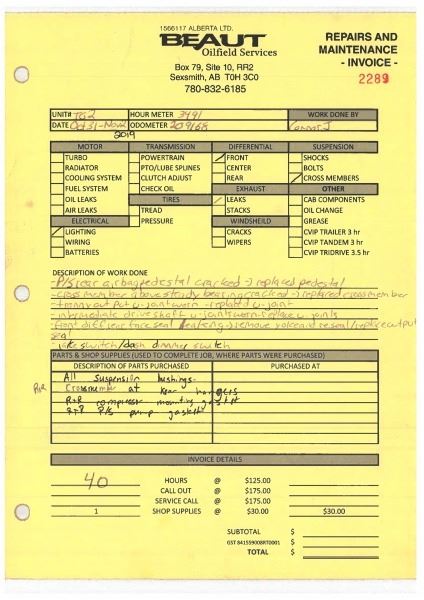 1566117 ALBERTA LTD.
BEAUT
Oilfield Services
Box 79, Site 10, RR2
Sexsmith, AB T0H 3C0
780-832-6185
REPAIRS AND
MAINTENANCE
- INVOICE -
2289
UNIT# HOUR METER 3491 WORK DONE BY
DATE Oct 31-Nov 2 ODOMETER 209168
2019
MOTOR TRANSMISSION DIFFERENTIAL SUSPENSION
TURBO POWERTRAIN FRONT SHOCKS
RADIATOR PTO/LUBE SPLINES CENTER BOLTS
COOLING SYSTEM CLUTCH ADJUST REAR CROSS MEMBERS
FUEL SYSTEM CHECK OIL EXHAUST OTHER
OIL LEAKS TIRES LEAKS CAB COMPONENTS
AIR LEAKS TREAD STACKS OIL CHANGE
ELECTRICAL PRESSURE WINDSHEILD GREASE
LIGHTING CRACKS CVIP TRAILER 3 hr
WIRING WIPERS CVIP TANDEM 3 hr
BATTERIES CVIP TRIDRIVE 3.5 hr
DESCRIPTION OF WORK DONE
- P/S rear airbag pedestal cracked -> replaced pedestal
- cross member above steady bearing cracked -> replaced cross member
- output u-joint worn - replaced u-joint
- intermediate drive shaft u-joints worn replace u-joints
- front diff rear face seal leaking -> remove yoke and reseal/replace output
seal
- switch/dash dimmer switch
PARTS & SHOP SUPPLIES (USED TO COMPLETE JOB, WHERE PARTS WERE PURCHASED)
DESCRIPTION OF PARTS PURCHASED PURCHASED AT
All Suspension bushings
R+R Crossmember at rear hangers
R+R compressor mounting gasket
R+R P/S pump gasket
INVOICE DETAILS
40 HOURS @ $125.00
CALL OUT @ $175.00
SERVICE CALL @ $175.00
1 SHOP SUPPLIES @ $30.00 $30.00
SUBTOTAL $
GST 841559008RT0001 $
TOTAL $